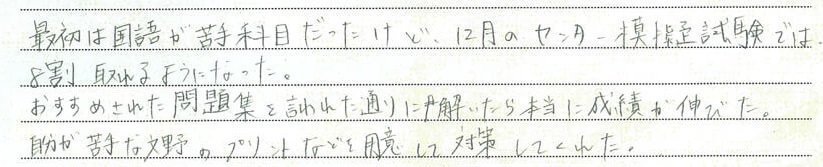 最初は国語が苦手科目だったけど、12月のセンター模擬試験では
8割取れるようになった。
おすすめされた問題集を言われた通りに解いたら本当に成績が伸びた。
自分が苦手な文野のプリントなどを用意して対策してくれた。